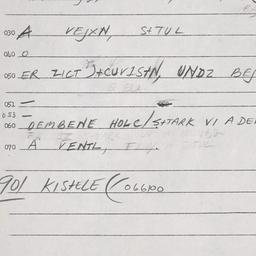 030 A VEJXN, S+TUL
040 O
050 ER ZICT S+CUVIS+N, UNDZ BEJ
051 —
053 —
060 DEMBENE HOLC/S+TARK VI A DER
070 A VENTL,
901 KISTELE (066100